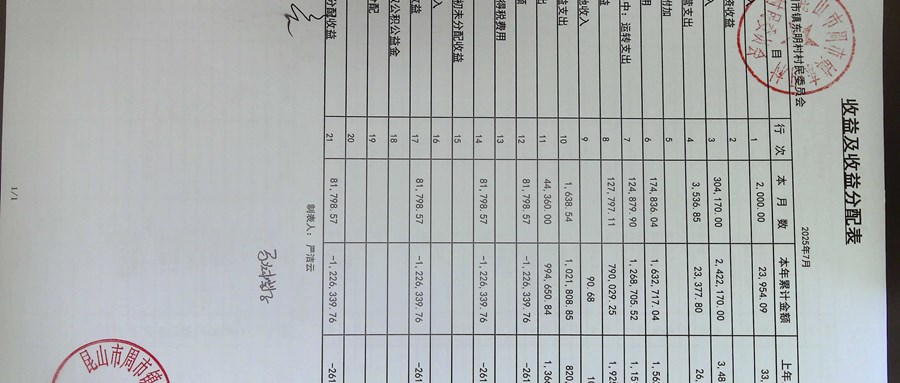 收益及收益分配表
2025年7月
市镇东明村村民委员会
目 行次 本月数 本年累计金额 上年
1 2,000.00 23,954.09 33,
资收益 2
入 3 304,170.00 2,422,170.00 3,48
营支出 4 3,536.85 23,377.80 26,
附加 5
用 6 174,836.04 1,632,717.04 1,56
中：运转支出 7 124,879.90 1,268,705.52 1,15
益 8 127,797.11 790,029.25 1,92
他收入 9 90.68 10
益支出 10 1,638.54 1,021,808.85 820,
出 11 44,360.00 994,650.84 1,36
额 12 81,798.57 -1,226,339.76 -261
得税费用 13
14 81,798.57 -1,226,339.76 -261
初未分配收益 15
入 16
收益 17 81,798.57 -1,226,339.76 -261
公积公益金 18
分配 19
20
分配收益 21 81,798.57 -1,226,339.76 -261
制表人：严洁云
1/1
昆山市周市镇